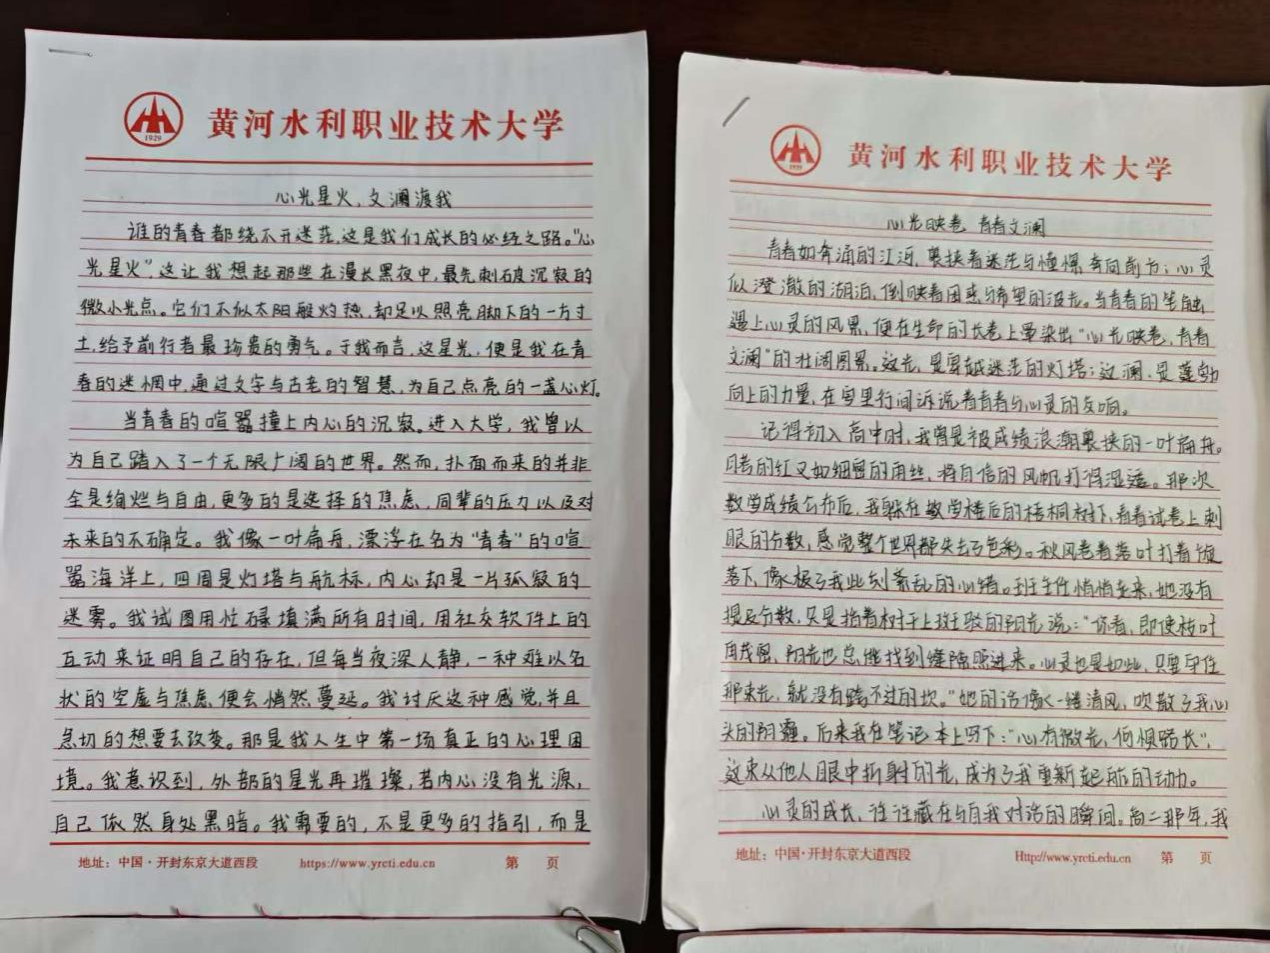 1929
黄河水利职业技术大学
心光星火,文澜渡我
谁的青春都绕不开迷茫,这是我们成长的必经之路。“心
光星火”,这让我想起那些在漫长黑夜中,最先刺破沉寂的
微小光点。它们不似太阳般灼热,却足以照亮脚下的一方寸
土,给予前行者最珍贵的勇气。于我而言,这星光,便是我在青
春的迷惘中,通过文字与古老的智慧,为自己点亮的一盏心灯。
当青春的喧嚣撞上内心的沉寂。进入大学,我曾以
为自己踏入了一个无限广阔的世界。然而,扑面而来的并非
全是绚烂与自由,更多的是选择的焦虑,同辈的压力以及对
未来的不确定。我像一叶扁舟,漂浮在名为“青春”的喧
嚣海洋上,四周是灯塔与航标,内心却是一片孤寂的
迷雾。我试图用忙碌填满所有时间,用社交软件上的
互动来证明自己的存在,但每当夜深人静,一种难以名
状的空虚与焦虑便会悄然蔓延。我讨厌这种感觉,并且
急切的想要去改变。那是我人生中第一场真正的心理困
境。我意识到,外部的星光再璀璨,若内心没有光源,
自己依然身处黑暗。我需要的,不是更多的指引,而是
地址：中国·开封东京大道西段 https://www.yrcti.edu.cn 第 页
1929
黄河水利职业技术大学
心光映卷 青春文澜
青春如奔涌的江河,裹挟着迷茫与憧憬,奔向前方；心灵
似澄澈的湖泊,倒映着困惑与希望的波光。当青春的笔触
遇上心灵的风景,便在生命的长卷上晕染出“心光映卷,青春
文澜”的壮阔图景。这光,是穿越迷茫的灯塔；这澜,是蓬勃
向上的力量,在字里行间诉说着青春与心灵的交响。
记得初入高中时,我曾是被成绩浪潮裹挟的一叶扁舟。
月考的红叉如细密的雨丝,将自信的风帆打得湿透。那次
数学成绩公布后,我躲在教学楼后的梧桐树下,看着试卷上刺
眼的分数,感觉整个世界都失去了色彩。秋风卷着落叶打着旋
落下,像极了我此刻紊乱的心绪。班主任悄悄走来,她没有
提及分数,只是指着树干上斑驳的阳光说：“你看,即使枝叶
再茂密,阳光也总能找到缝隙照进来。心灵也是如此,只要守住
那束光,就没有跨不过的坎。”她的话像一缕清风,吹散了我心
头的阴霾。后来我在笔记本上写下：“心有微光,何惧路长”,
这束从他人眼中折射的光,成为了我重新起航的动力。
心灵的成长,往往藏在与自我对话的瞬间。高二那年,我
地址：中国·开封东京大道西段 Http//www.yrcti.edu.cn 第 页